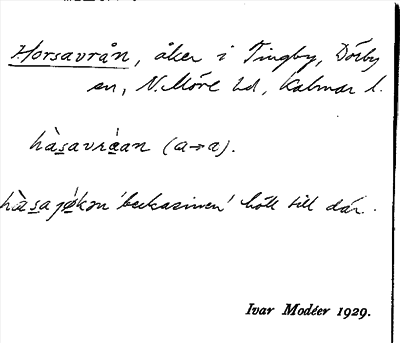 Horsavrån, åker i Tingby, Dörby
sn, N. Möre hd, Kalmar l.
hàsavráan (a→a).
hàsajǿkən 'beckasinen' höll till där.
Ivar Modéer 1929.